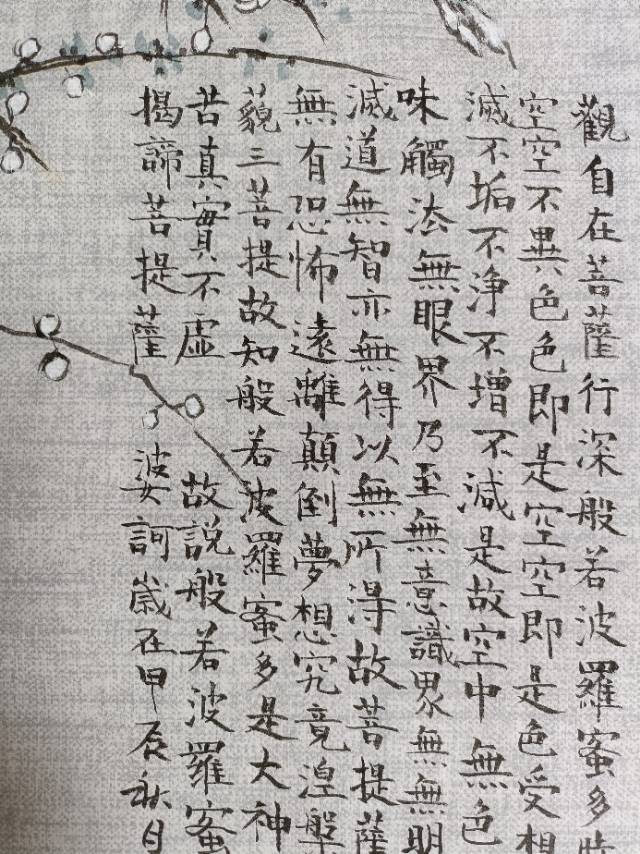 觀自在菩薩行深般若波羅蜜多時
空空不異色色即是空空即是色受想
滅不垢不淨不增不減是故空中無色
味觸法無眼界乃至無意識界無無明
滅道無智亦無得以無所得故菩提薩
無有恐怖遠離顛倒夢想究竟涅槃
藐三菩提故知般若波羅蜜多是大神
苦真實不虛故說般若波羅蜜
揭諦菩提薩婆訶歲在甲辰秋月